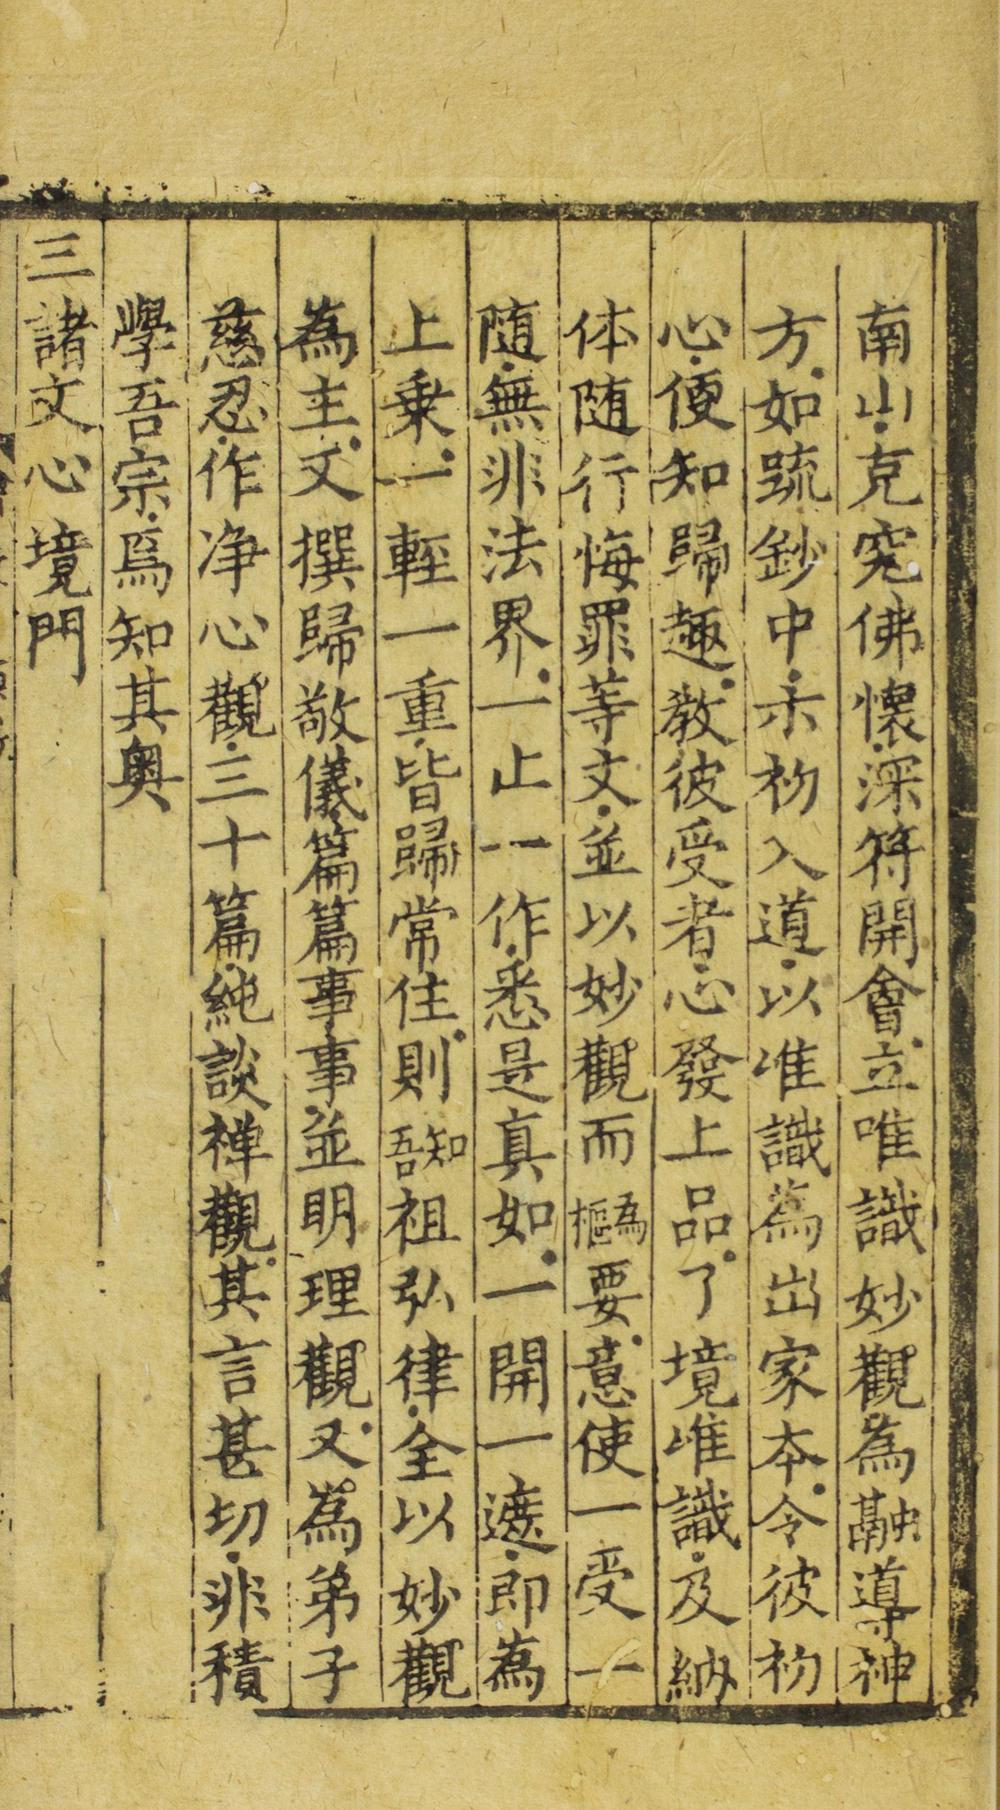 南山克究佛懷深符開會立唯識妙觀為融導神
方如䟽鈔中示初入道以唯識為出家本令彼初
心便知歸趣教彼受者心發上品了境唯識及納
体随行悔罪等文並以妙觀而為樞要意使一受一
随無非法界一止一作悉是真如一開一遮即為
上乗一輕一重皆歸常住則知吾祖弘律全以妙觀
為主文撰歸敬儀篇篇事事並明理觀又為弟子
慈忍作净心觀三十篇純談禅觀其言甚切非積
學吾宗焉知其奥
三諸文心境門